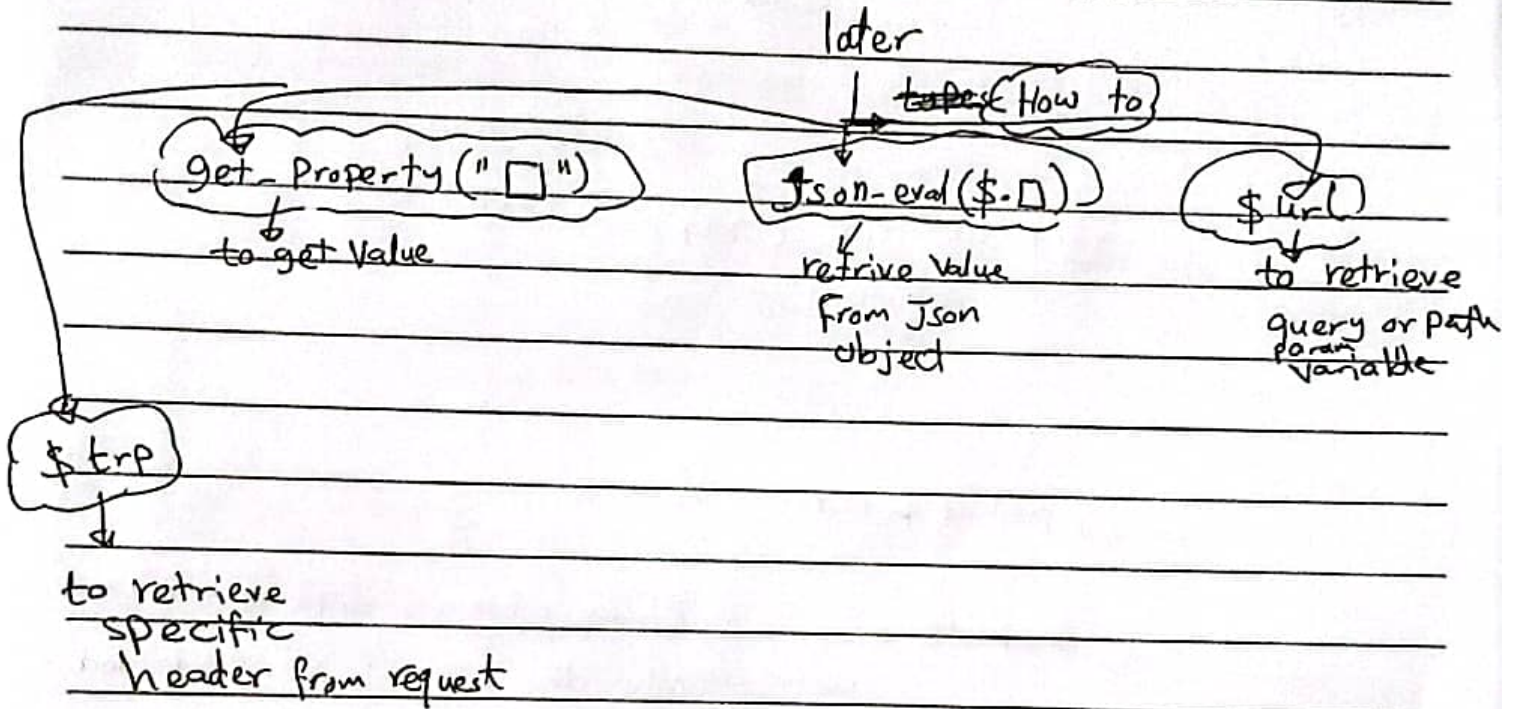 later
How to
get_Property("□")
Json-eval($.□)
$url
to get Value
retrive Value
From Json
object
to retrieve
query or Path
param
variable
$trp
to retrieve
specific
header from request